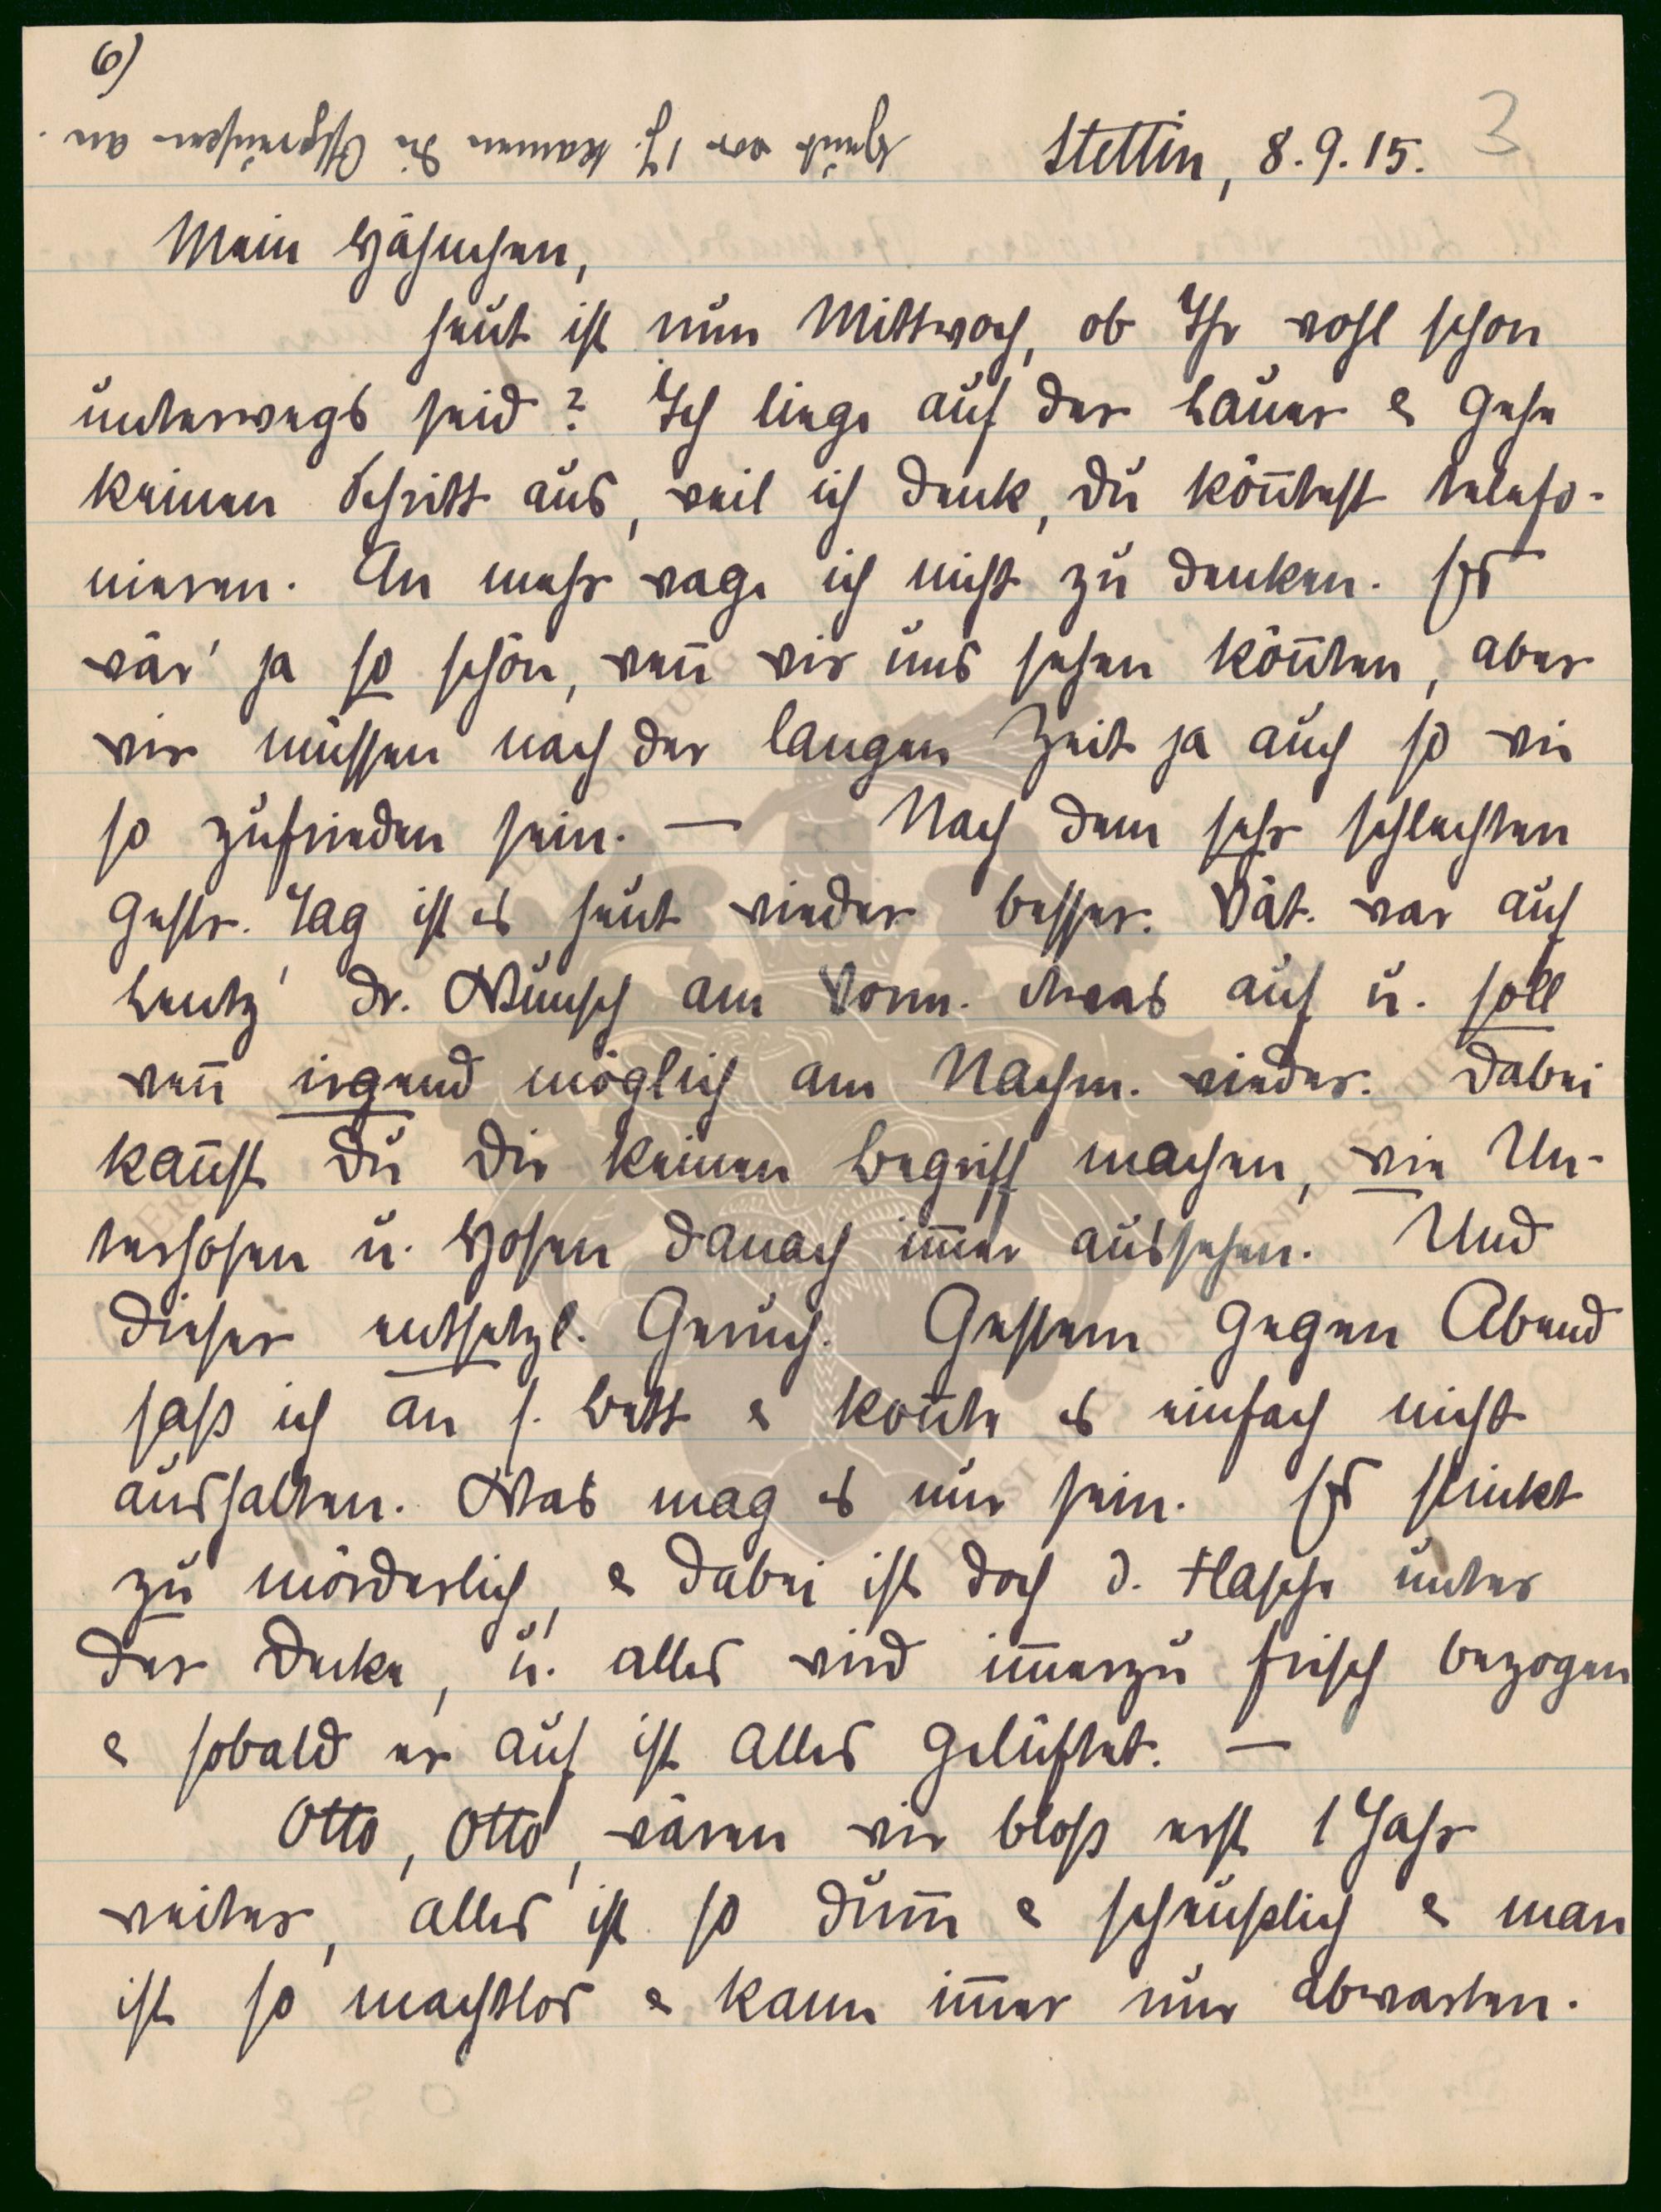 6)
Heut vor 1 J. kamen die Ostpreußen an.
Stettin, 8.9.15. 3
Mein Häschen,
heut ist nun Mittwoch, ob Ihr wohl schon
unterwegs seid? Ich liege auf der Lauer & gehe
keinen Schritt aus, weil ich denk, Du könntest telefo-
nieren. An mehr wage ich nicht zu denken. Es
wär' ja so schön, wenn wir uns sehen könnten, aber
wir müssen nach der langen Zeit ja auch so wie
so zufrieden sein. — Nach dem sehr schlechten
gestr. Tag ist es heut wieder besser. Vat. war auf
Lentz' Dr. Wunsch am Vorm. etwas auf u. soll
wenn irgend möglich am Nachm. wieder. Dabei
kannst Du Dir keinen Begriff machen, wie Un-
terhosen u. Hosen danach immer aussehen. Und
dieser entsetzl. Geruch. Gestern gegen Abend
saß ich an s. Bett & konnte es einfach nicht
aushalten. Was mag es nur sein. Es stinkt
zu mörderlich, & dabei ist doch d. Flasche unter
der Decke, u. alles wird immerzu frisch bezogen
& sobald er auf ist alles gelüftet. —
Otto, Otto, wären wir bloß erst 1 Jahr
weiter, alles ist so dumm & scheußlich & man
ist so machtlos & kann immer nur abwarten.